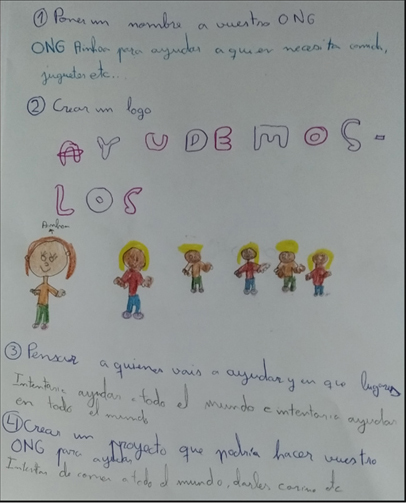 ① Poner un nombre a vuestro ONG
ONG Ainhoa para ayudar a quien necesita comida,
juguetes etc...
② Crear un logo
AYUDEMOS-
LOS
Ainhoa
③ Pensar a quienes vais a ayudar y en que lugares
Intentaria ayudar a todo el mundo e intentaria ayudar
en todo el mundo
④ Crear un proyecto que podria hacer vuestro
ONG para ayudar
Intentar de comer a todo el mundo, darles carino etc